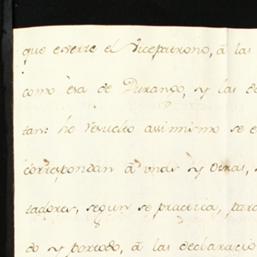 que exerce el Vicepatrono, â las
como esa de Durango, y las de
tan: he resuelto assimismo se e
correspondan â unas y otras,
tadores, segun se practica, para
do y portodo, â las declaracio